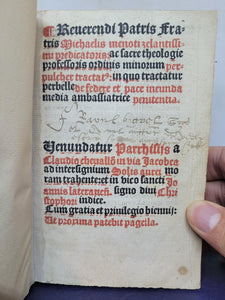 ¶ Reuerendi Patris Fra
tris Michaelis menoti zelantissi
mi predicatoris: ac sacre theologie
professoris ordinis minorum per
pulcher tractatꝰ: in quo tractatur
perbelle de federe et pace ineunda
media ambassiatrice penitentia.
Venundatur Parrhisijs a
Claudio cheuallõ in via Jacobea
ad intersignium Solis aurei mo
ram trahente: et in vico sancti Jo
annis lateranẽ. signo diui Chri
stophori indice.
Cum gratia et priuilegio biennij:
Ut proxima patebit pagella.